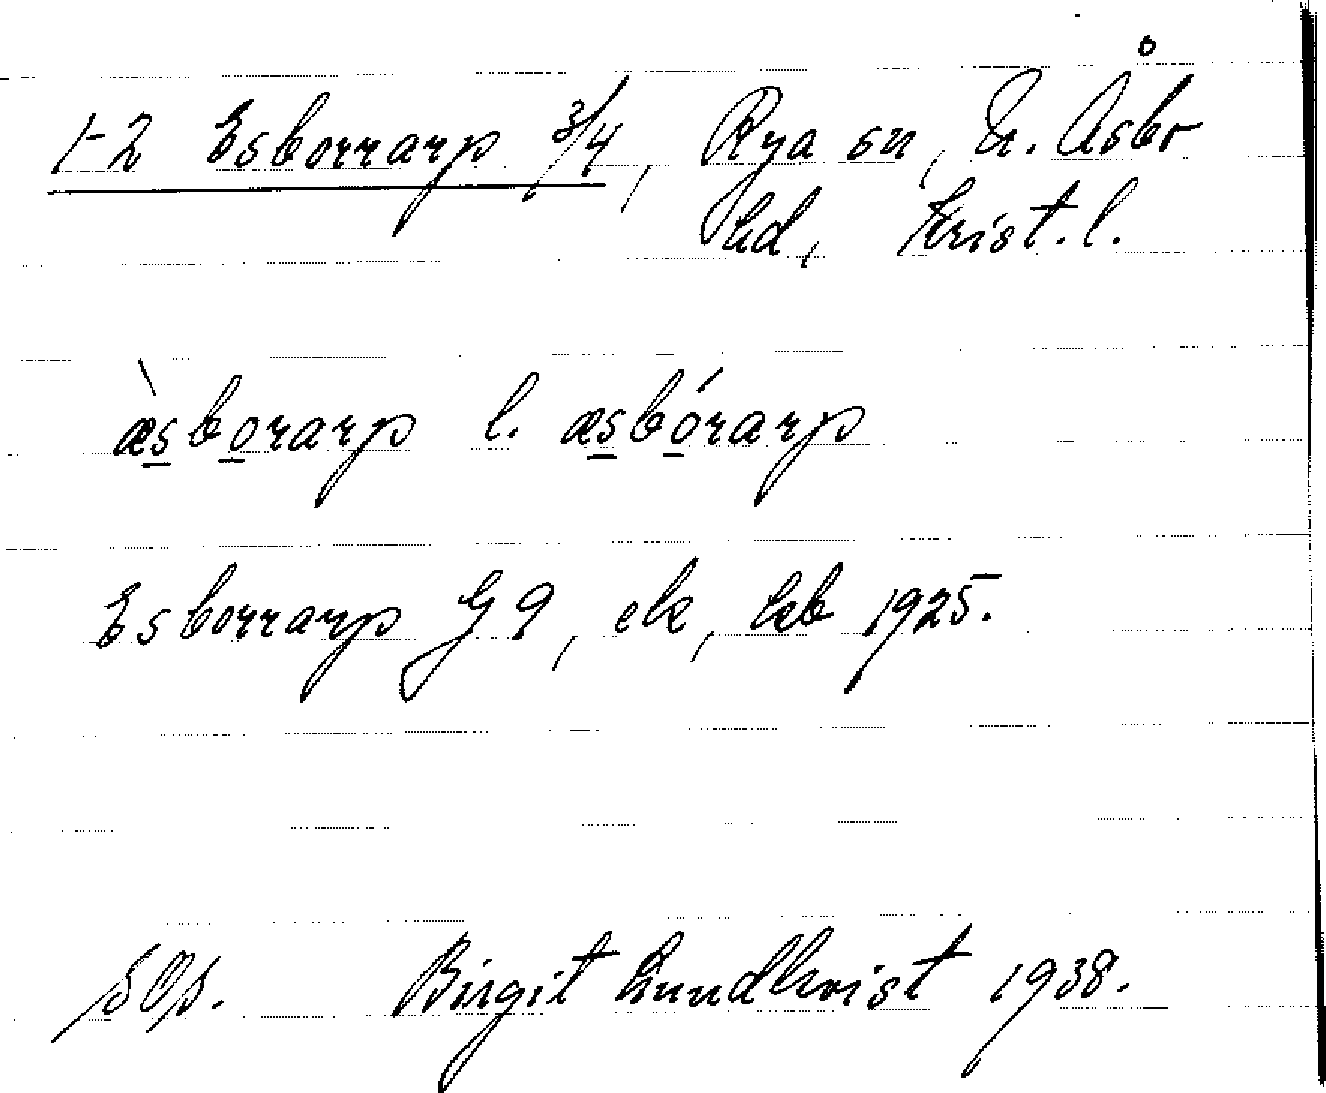 1-2 Esborrarp 3/4, Rya sn, N. Åsbo
hd, Krist. l.
æ̀sbo̲rarp l. æsbó̲rarp
Esborrarp G9, ek, kb 1925.
SOp. Birgit Lundkvist 1938.